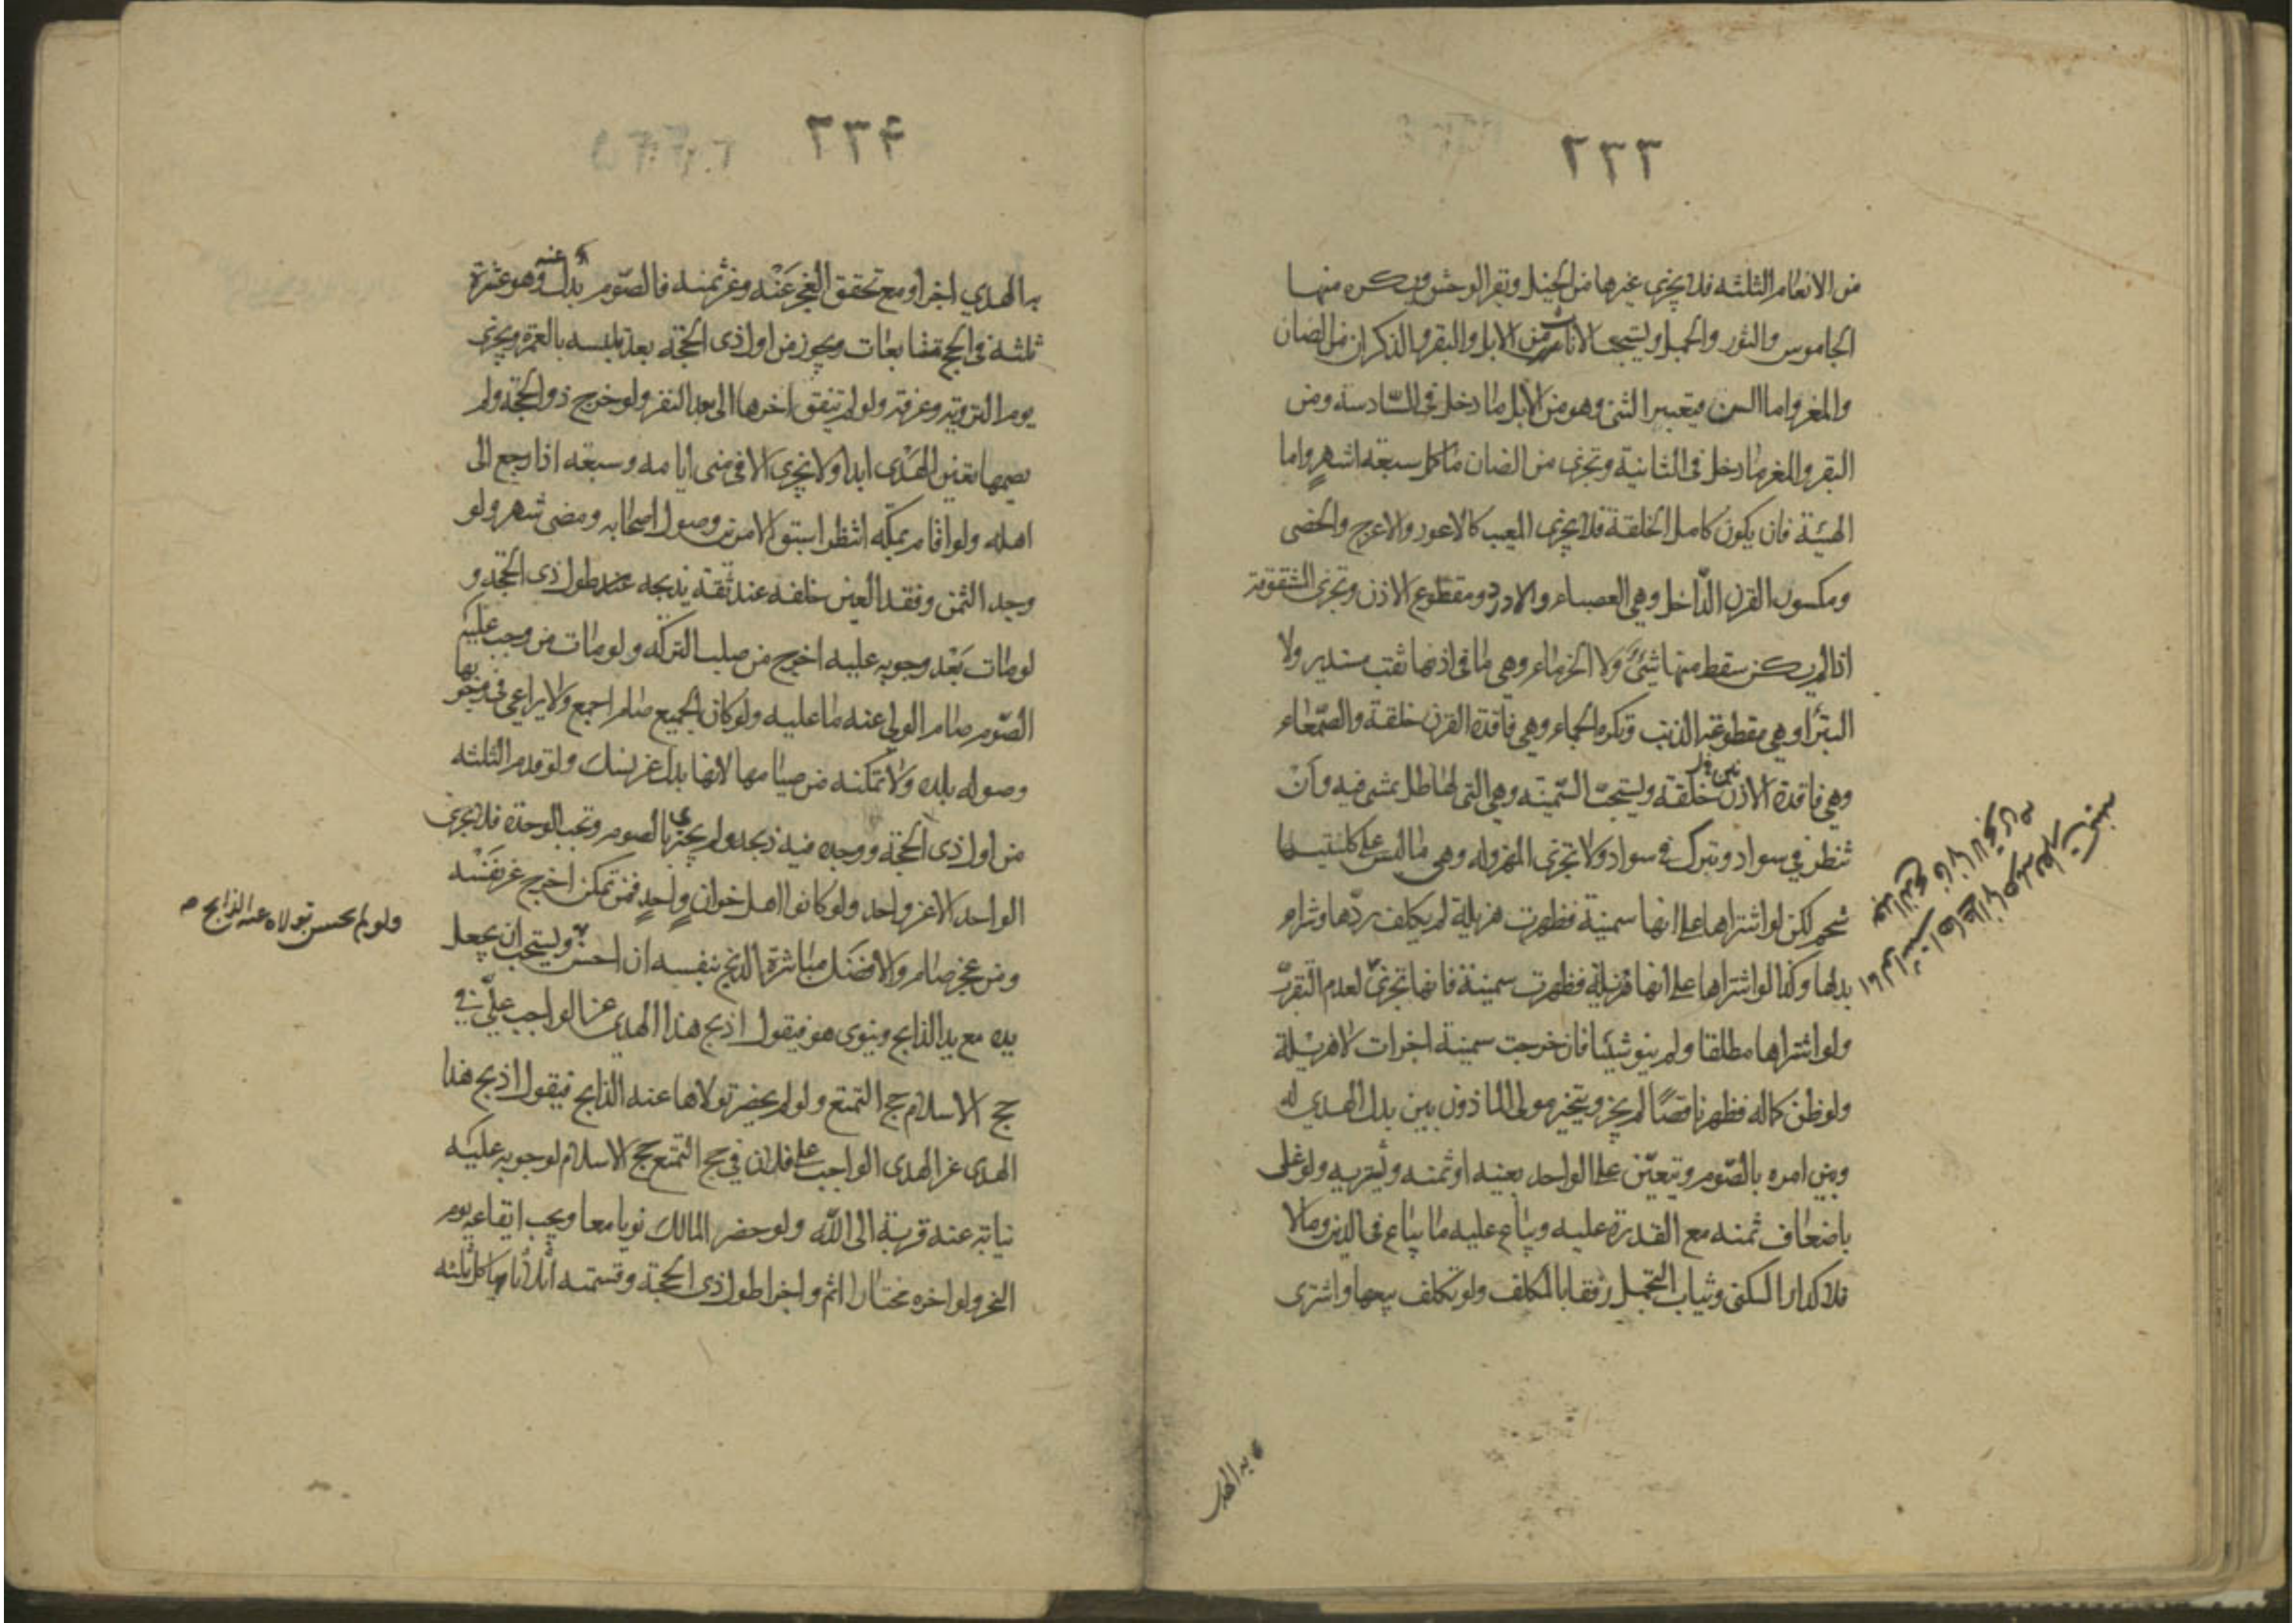 ٢٣٣
من الانعام الثلثه فلا يجزى غيرها من الخيل وبقر الوحش ويكره منها
الجاموس والثور والجمل ويستحب الاناث من الابل والبقر والذكران من الضان
والمغر واما السن فيعتبر الثنى وهو من الابل ما دخل فى السادسة ومن
البقر والمغر ما دخل فى الثانية وتجزى من الضان ما كمل سبعة اشهر واما
الهيئة فان يكون كامل الخلقة فلا يجزى المعيب كالاعور والاعرج والخصى
ومكسور القرن الداخل وهي العصباء والادرد ومقطوع الاذن وتجزى المشقوقة
اذا لم يكن سقط منها شئ ولا الخرماء وهي ما فى اذنها ثقب مستدير ولا
البتراء وهي مقطوعة الذنب وتكره الجماء وهي فاقدة القرن خلقة والصمعاء
وهي فاقدة الاذن خلقة ويستحب السمينه وهي التى لها ظل تمشى فيه وان
تنظر في سواد وتبرك في سواد ولا تجزى المهزوله وهي ما ليس على كليتيها
شحم لكن لو اشتراها على انها سمينة فظهرت هزيلة لم يكلف ردها وشراء
بدلها وكذا لو اشتراها على انها هزيلة فظهرت سمينة فانها تجزى لعدم التقرب
ولو اشتراها مطلقا ولم ينو شيئا فان خرجت سمينة اجزات لا هزيلة
ولو ظن كماله فظهر ناقصا لم يجز ويتخير مولى الماذون بين بذل الهدى له
وبين امره بالصوم ويتعين على الواجد بعينه او ثمنه وليشتريه ولو غلى
باضعاف ثمنه مع القدرة عليه ويباع عليه ما يباع فى الدين وما لا
فلا كدار السكنى وثياب التجمل رفقا بالمكلف ولو تكلف بيعها واشترى
به الهدى
٢٣٤
به الهدي اجزا ومع تحقق العجز عنه وعن ثمنه فالصوم بدل عنه وهو عشرة
ثلثة فى الحج متتابعات ويجوز من اول ذى الحجة بعد تلبسه بالعمرة ويجزى
يوم التروية وعرفة ولو لم يتفق اخرها الى بعد النفر ولو خرج ذو الحجة ولم
يصمها تعين الهدى ابدا ولا يجزى الا فى منى ايامه وسبعة اذا رجع الى
اهله ولو اقام بمكة انتظر اسبق الامرين وصول اصحابه ومضى شهر ولو
وجد الثمن وفقد العين خلفه عند ثقة يذبحه عنه طول ذى الحجة و
لو مات بعد وجوبه عليه اخرج من صلب التركه ولو مات من وجب عليه
الصوم صام الولى عنه ما عليه ولو كان الجميع صام اجمع ولا يراعى فى وجوبها
وصوله بلده ولا تمكنه من صيامها لانها بدل عن نسك ولو قدم الثلثه
من اول ذى الحجة ووجد فيه ذبحه ولم يجتز بالصوم وتجب الوحدة فلا يجزى
الواحد الا عن واحد ولو كانوا اهل خوان واحد فمن تمكن اخرج عن نفسه
ومن عجز صام والافضل مباشرة الذبح بنفسه ان احسن ويستحب ان يجعل
يده مع يد الذابح وينوى هو فيقول اذبح هذا الهدى عن الواجب علي في
حج الاسلام حج التمتع ولو لم يحضر تولاها عنه الذابح فيقول اذبح هذا
الهدى عن الهدى الواجب على فلان في حج التمتع حج الاسلام لوجوبه عليه
نيابة عنه قربة الى الله ولو حضر المالك نويا معا ويجب ايقاعه يوم
النحر ولو اخره مختارا اثم واجزا طول ذى الحجة وقسمته اثلاثا ياكل ثلثه
ولو لم يحسن تولاه عنه الذابح